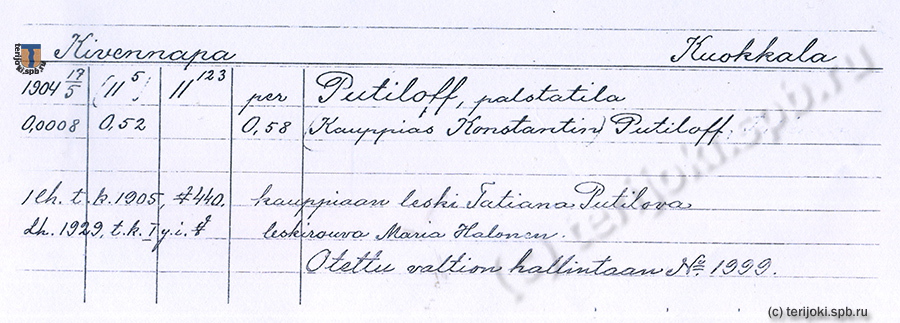 Kivennapa Kuokkala
1904 17/5 (11⁵) 11¹²³ per Putiloff, palstatila
0,0008 0,52 0,58 (Kauppias Konstantin) Putiloff.
1 lh. t. k. 1905, # 440. kauppiaan leski Tatiana Putilova
lh. 1929, t. k. I y. i. leskirouva Maria Halonen.
Otettu valtion hallintaan No. 1999.
terijoki.spb.ru
(c) terijoki.spb.ru
(c) terijoki.spb.ru